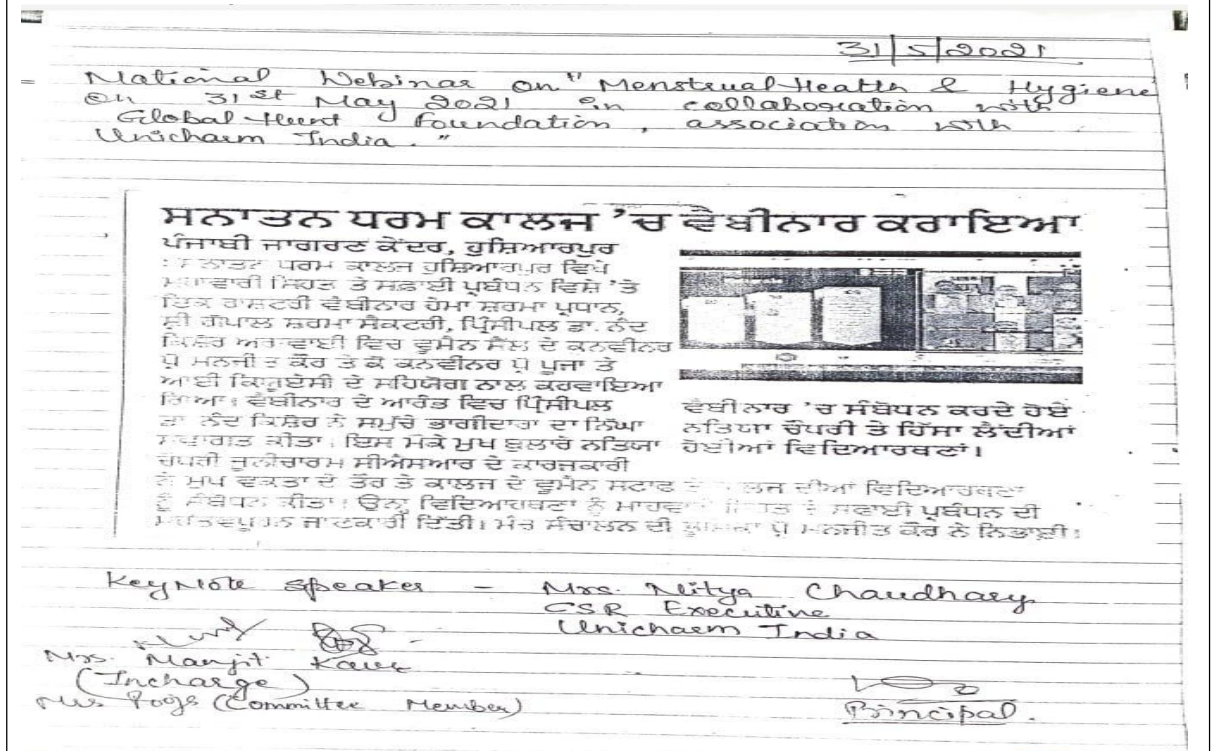 31/5/2021
= National Webinar on "Menstrual Health & Hygiene
on 31st May 2021 in collaboration with
Global Hunt Foundation, association with
Unicharm India."
ਸਨਾਤਨ ਧਰਮ ਕਾਲਜ 'ਚ ਵੈਬੀਨਾਰ ਕਰਾਇਆ
ਪੰਜਾਬੀ ਜਾਗਰਣ ਕੇਂਦਰ, ਹੁਸ਼ਿਆਰਪੁਰ
: ਸਨਾਤਨ ਧਰਮ ਕਾਲਜ ਹੁਸ਼ਿਆਰਪੁਰ ਵਿਖੇ
ਮਹਾਵਾਰੀ ਸਿਹਤ ਤੇ ਸਫ਼ਾਈ ਪ੍ਰਬੰਧਨ ਵਿਸ਼ੇ 'ਤੇ
ਇਕ ਰਾਸ਼ਟਰੀ ਵੈਬੀਨਾਰ ਹੇਮਾ ਸ਼ਰਮਾ ਪ੍ਰਧਾਨ,
ਸ਼੍ਰੀ ਗੋਪਾਲ ਸ਼ਰਮਾ ਸੈਕਟਰੀ, ਪ੍ਰਿੰਸੀਪਲ ਡਾ. ਨੰਦ
ਕਿਸ਼ੋਰ ਅਗਵਾਈ ਵਿਚ ਵੂਮੈਨ ਸੈੱਲ ਦੇ ਕਨਵੀਨਰ
ਪ੍ਰੋ ਮਨਜੀਤ ਕੌਰ ਤੇ ਕੋ ਕਨਵੀਨਰ ਪ੍ਰੋ ਪੂਜਾ ਤੇ
ਆਈ ਕਿਊਏਸੀ ਦੇ ਸਹਿਯੋਗ ਨਾਲ ਕਰਵਾਇਆ
ਗਿਆ। ਵੈਬੀਨਾਰ ਦੇ ਆਰੰਭ ਵਿਚ ਪ੍ਰਿੰਸੀਪਲ
ਡਾ ਨੰਦ ਕਿਸ਼ੋਰ ਨੇ ਸਮੁੱਚੇ ਭਾਗੀਦਾਰਾਂ ਦਾ ਨਿੱਘਾ
ਸਵਾਗਤ ਕੀਤਾ। ਇਸ ਮੌਕੇ ਮੁਖ ਬੁਲਾਰੇ ਨਤਿਯਾ
ਚੌਧਰੀ ਯੂਨੀਚਾਰਮ ਸੀਐਸਆਰ ਦੇ ਕਾਰਜਕਾਰੀ
ਨੇ ਮੁਖ ਵਕਤਾ ਦੇ ਤੌਰ ਤੇ ਕਾਲਜ ਦੇ ਵੂਮੈਨ ਸਟਾਫ ਤੇ ਕਾਲਜ ਦੀਆਂ ਵਿਦਿਆਰਥਣਾਂ
ਨੂੰ ਸੰਬੋਧਨ ਕੀਤਾ। ਉਨ੍ਹਾਂ ਵਿਦਿਆਰਥਣਾਂ ਨੂੰ ਮਾਹਵਾਰੀ ਸਿਹਤ ਤੇ ਸਫਾਈ ਪ੍ਰਬੰਧਨ ਦੀ
ਮਹੱਤਵਪੂਰਨ ਜਾਣਕਾਰੀ ਦਿੱਤੀ। ਮੰਚ ਸੰਚਾਲਨ ਦੀ ਭੂਮਿਕਾ ਪ੍ਰੋ ਮਨਜੀਤ ਕੌਰ ਨੇ ਨਿਭਾਈ।
ਵੈਬੀਨਾਰ 'ਚ ਸੰਬੋਧਨ ਕਰਦੇ ਹੋਏ
ਨਤਿਯਾ ਚੌਧਰੀ ਤੇ ਹਿੱਸਾ ਲੈਂਦੀਆਂ
ਹੋਈਆਂ ਵਿਦਿਆਰਥਣਾਂ।
KeyNote Speaker - Mrs. Nitya Chaudhary
CSR Executive
Unicharm India
Mrs. Manjit Kaur
(Incharge)
Mrs Pooja (Committee Member)
Principal.